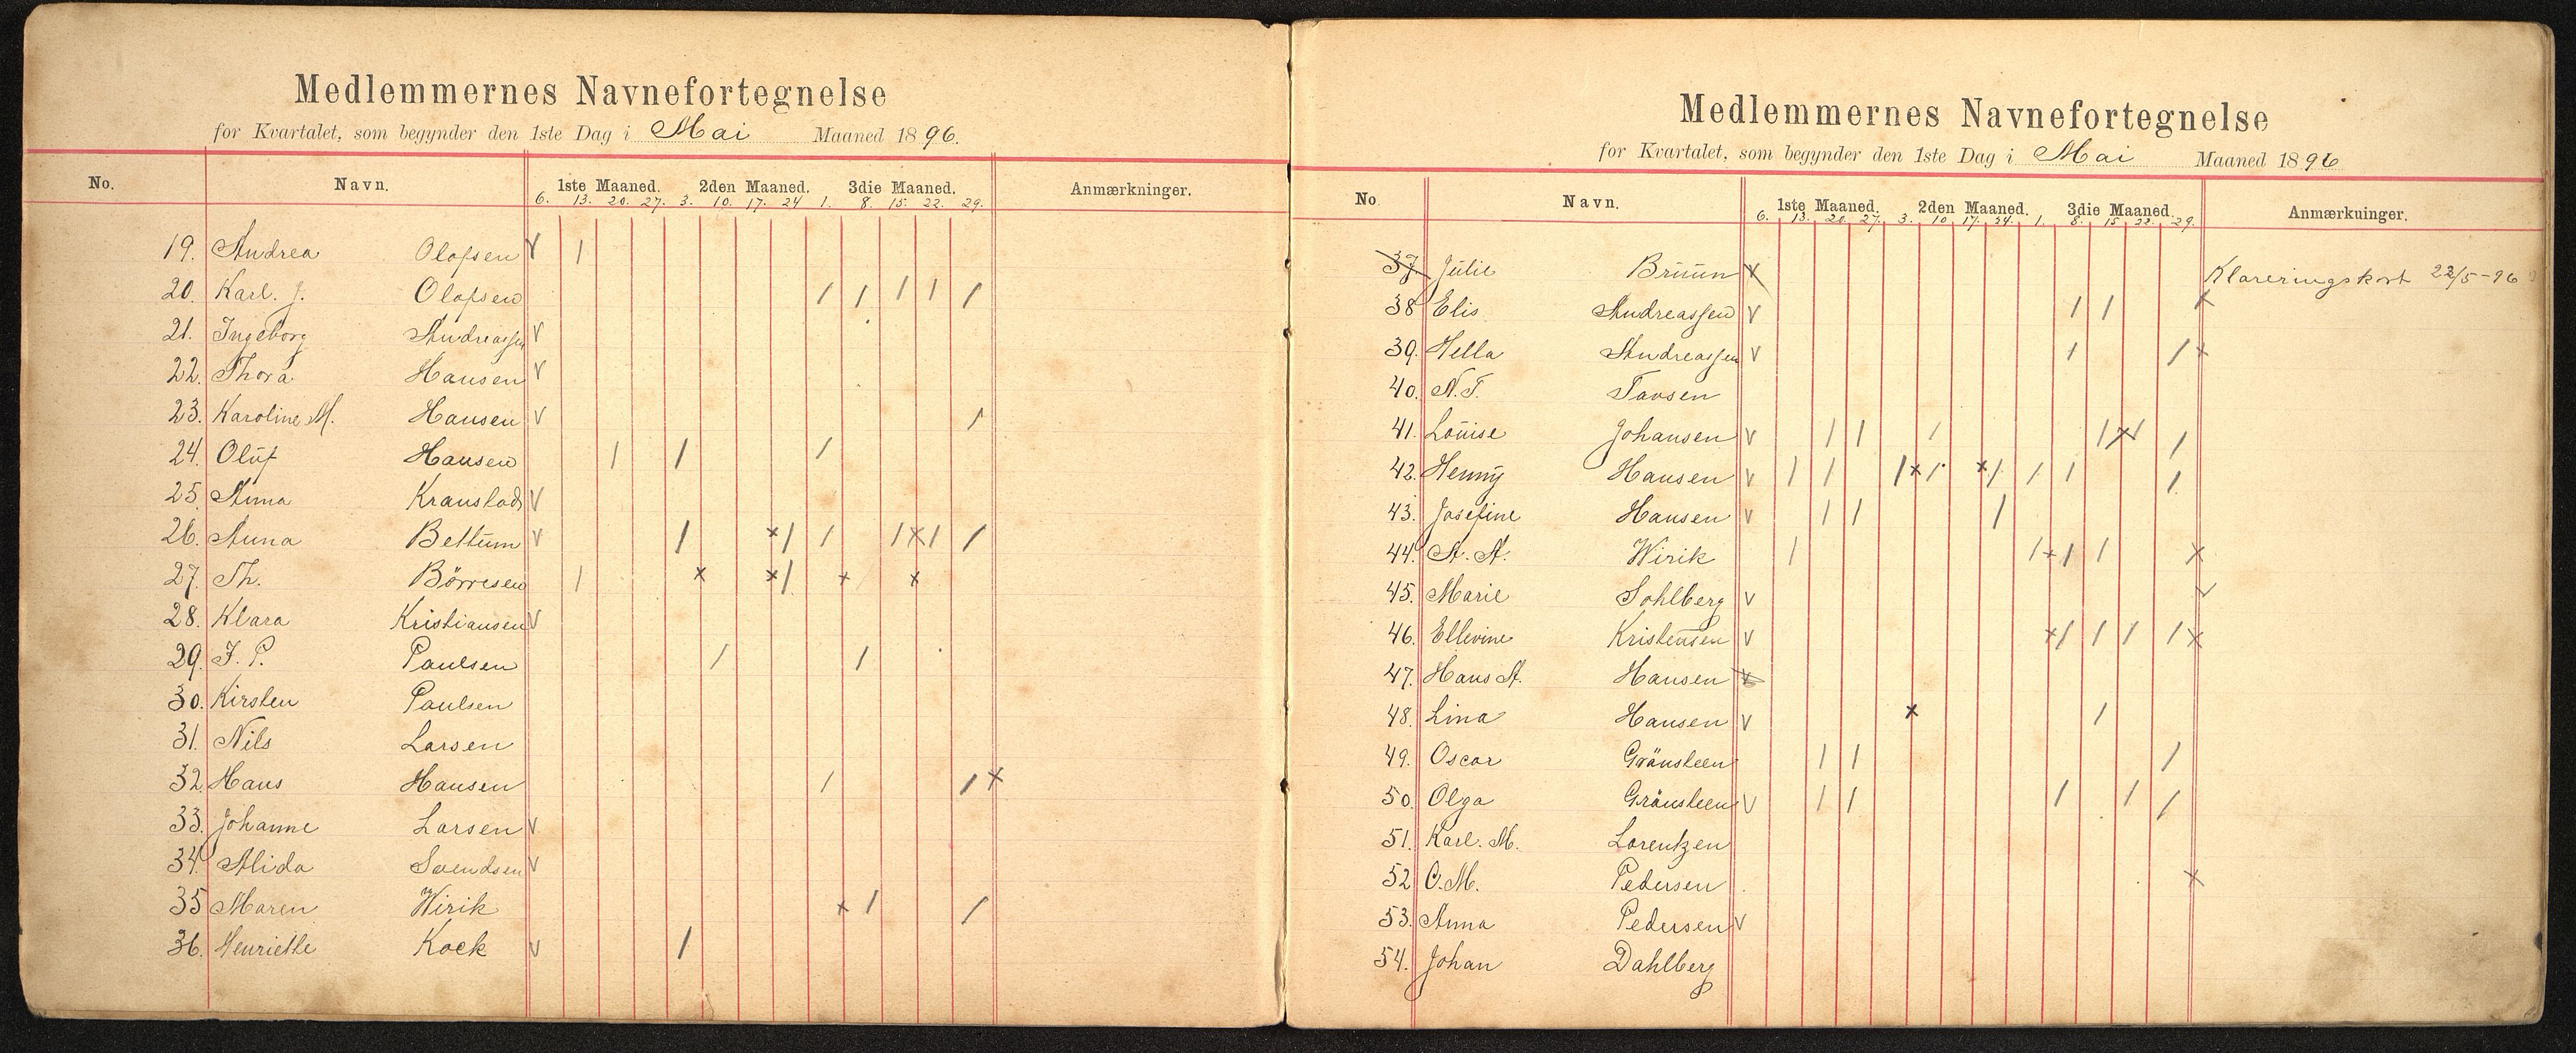 Medlemmernes Navnefortegnelse
for Kvartalet, som begynder den 1ste Dag i Mai Maaned 1896.
No. Navn. 1ste Maaned. 2den Maaned. 3die Maaned. Anmærkninger.
6. 13. 20. 27. 3. 10. 17. 24 1. 8. 15. 22. 29.
19. Andrea Olofsen V /
20. Karl. J. Olofsen / / / / /
21. Ingeborg Andreassen V
22. Thora Hansen V
23. Karoline M. Hansen V /
24. Oluf Hansen / / /
25. Anna Kranstad V
26. Anna Bettum V / x/ / /x/ /
27. Th. Börresen / x x/ x x
28. Klara Kristiansen V
29. J. P. Paulsen / /
30. Kirsten Paulsen
31. Nils Larsen
32. Hans Hansen / / x
33. Johanne Larsen V
34. Alida Svendsen V
35 Maren Wirik x / /
36. Henriette Kock V /
Medlemmernes Navnefortegnelse
for Kvartalet, som begynder den 1ste Dag i Mai Maaned 1896
No. Navn. 1ste Maaned. 2den Maaned. 3die Maaned. Anmærkninger.
6. 13. 20. 27. 3. 10. 17. 24. 1. 8. 15. 22. 29.
37 Julie Bruun V Klareringskort 22/5-96
38 Elis Andreassen V / / x
39. Hella Andreassen V / / x
40. N. T. Tavsen
41. Louise Johansen V / / / /x/ /
42. Henny Hansen V / / /x/ x/ / / /
43. Josefine Hansen V / / /
44. A. A. Wirik / /x/ / x
45. Marie Sohlberg V V
46. Ellevine Kristensen V x/ / / / x
47. Hans A. Hansen
48. Lina Hansen V x /
49. Oscar Grönsteen / / /
50. Olga Grönsteen V / / / / /
51. Karl. M. Lorentzen
52 O. M. Pedersen x
53. Anna Pedersen V
54. Johan Dahlberg